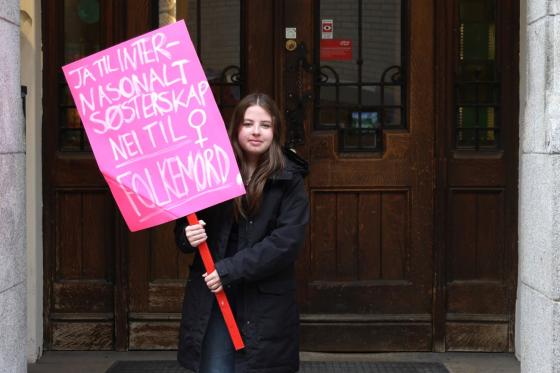 JA TIL INTER-
NASONALT
SØSTERSKAP
NEI TIL ♀
FOLKEMORD